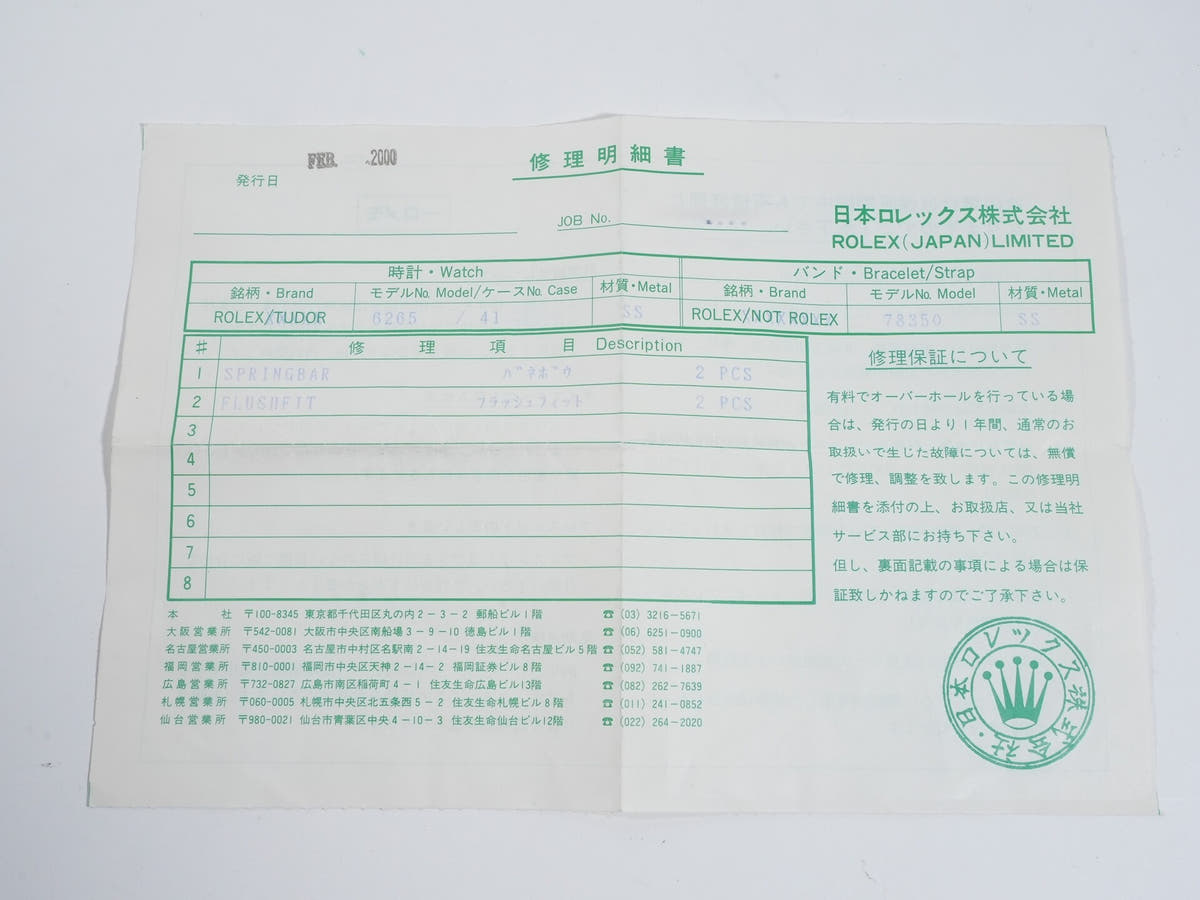 FEB. 2000
修理明細書
発行日
JOB No.
日本ロレックス株式会社
ROLEX(JAPAN)LIMITED
時計・Watch
バンド・Bracelet/Strap
銘柄・Brand モデルNo. Model/ケースNo. Case 材質・Metal 銘柄・Brand モデルNo. Model 材質・Metal
ROLEX/TUDOR 6265 / 41 SS ROLEX/NOT ROLEX 78350 SS
# 修理項目 Description
1 SPRINGBAR バネボウ 2 PCS
2 FLUSHFIT フラッシュフィット 2 PCS
3
4
5
6
7
8
修理保証について
有料でオーバーホールを行っている場
合は、発行の日より1年間、通常のお
取扱いで生じた故障については、無償
で修理、調整を致します。この修理明
細書を添付の上、お取扱店、又は当社
サービス部にお持ち下さい。
但し、裏面記載の事項による場合は保
証致しかねますのでご了承下さい。
本社 〒100-8345 東京都千代田区丸の内2-3-2 郵船ビル1階 ☎(03) 3216-5671
大阪営業所 〒542-0081 大阪市中央区南船場3-9-10 徳島ビル1階 ☎(06) 6251-0900
名古屋営業所 〒450-0003 名古屋市中村区名駅南2-14-19 住友生命名古屋ビル5階 ☎(052) 581-4747
福岡営業所 〒810-0001 福岡市中央区天神2-14-2 福岡証券ビル8階 ☎(092) 741-1887
広島営業所 〒732-0827 広島市南区稲荷町4-1 住友生命広島ビル13階 ☎(082) 262-7639
札幌営業所 〒060-0005 札幌市中央区北五条西5-2 住友生命札幌ビル8階 ☎(011) 241-0852
仙台営業所 〒980-0021 仙台市青葉区中央4-10-3 住友生命仙台ビル12階 ☎(022) 264-2020
日本ロレックス株式会社・